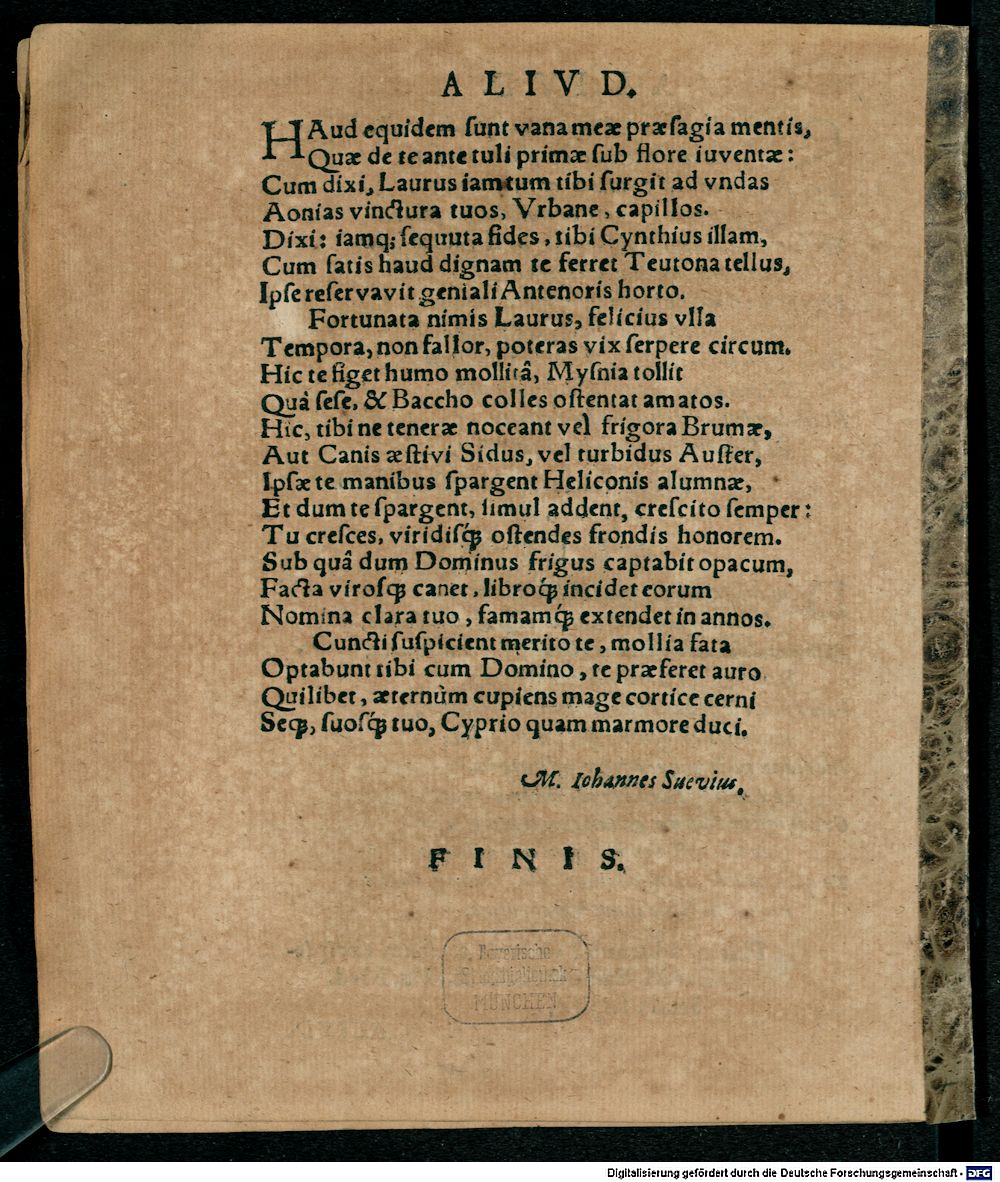 ALIVD.
HAud equidem ſunt vana meæ præſagia mentis,
Quæ de te ante tuli primæ ſub flore iuventæ:
Cum dixi, Laurus iam tum tibi ſurgit ad vndas
Aonias vinctura tuos, Vrbane, capillos.
Dixi: iamq; ſequuta fides, tibi Cynthius illam,
Cum ſatis haud dignam te ferret Teutona tellus,
Ipſe reſervavit geniali Antenoris horto.
Fortunata nimis Laurus, felicius vlla
Tempora, non fallor, poteras vix ſerpere circum.
Hic te figet humo mollitâ, Myſnia tollit
Quà ſeſe, & Baccho colles oſtentat amatos.
Hic, tibi ne teneræ noceant vel frigora Brumæ,
Aut Canis æſtivi Sidus, vel turbidus Auſter,
Ipſæ te manibus ſpargent Heliconis alumnæ,
Et dum te ſpargent, ſimul addent, creſcito ſemper:
Tu creſces, viridiſq́; oſtendes frondis honorem.
Sub quâ dum Dominus frigus captabit opacum,
Facta viroſq; canet, libroq́; incidet eorum
Nomina clara tuo, famamq́; extendet in annos.
Cuncti ſuſpicient merito te, mollia fata
Optabunt tibi cum Domino, te præferet auro
Quilibet, æternùm cupiens mage cortice cerni
Seq;, ſuoſq́; tuo, Cyprio quam marmore duci.
M. Iohannes Suevius.
FINIS.
Bayerische
Staatsbibliothek
MÜNCHEN
Digitalisierung gefördert durch die Deutsche Forschungsgemeinschaft - DFG